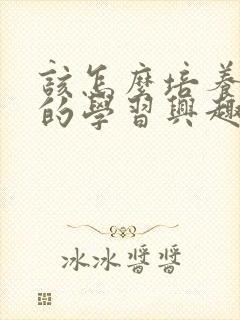 該怎麼培養
的學習興趣
冰冰醬醬